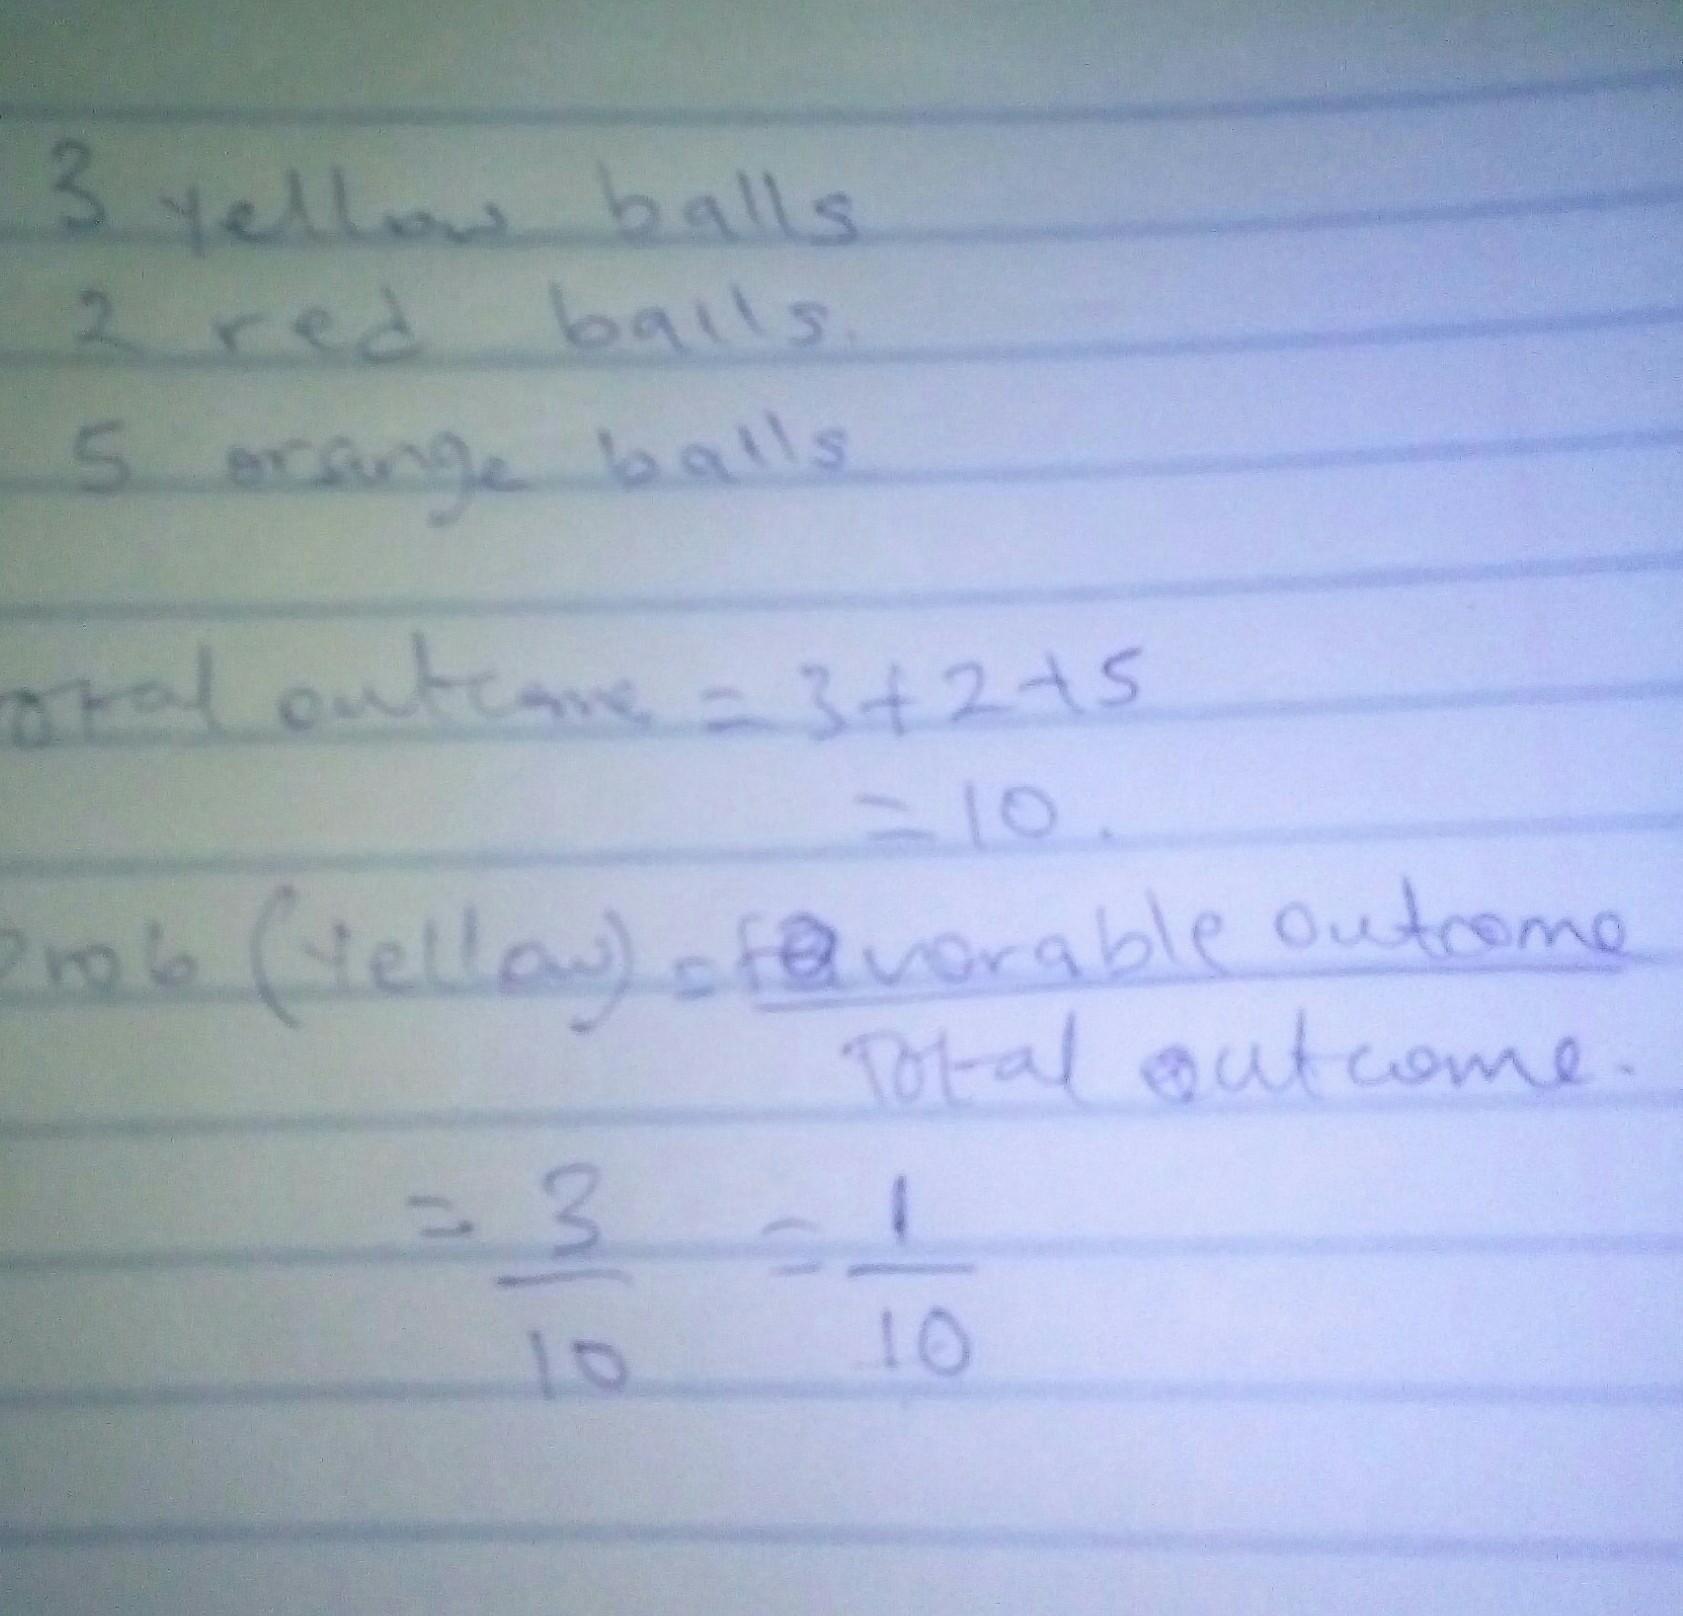 3 yellow balls
2 red balls.
5 orange balls
otal outcome = 3+2+5
= 10.
Prob (Yellow) = favorable outcome
Total outcome.
= 3 = 1
10 10